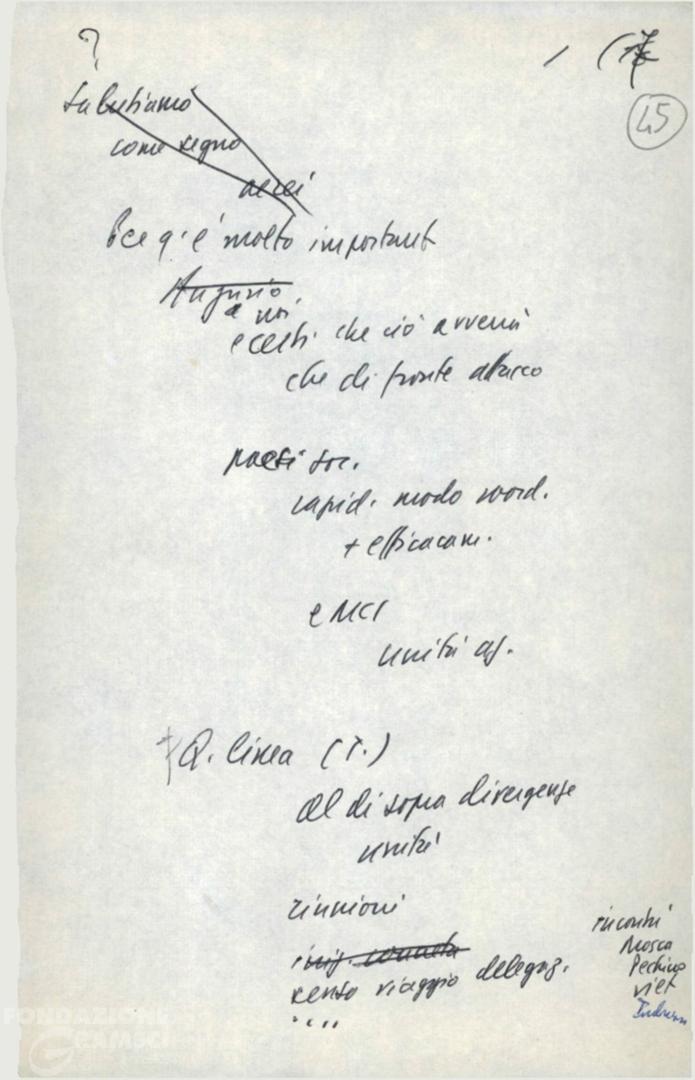 ?
45
Salutiamo
come segno
molto important
Augurio
a noi
che ciò avvenà
che di fronte attacco
paesi soc.
rapid. modo coord.
+ efficacem.
e MCI
unità
Q. linea (T.)
al di sopra divergenze
unità
riunioni
senso viaggio delegaz.
incontri
Mosca
Pechino
Viet
FONDAZIONE
GRAMSCI